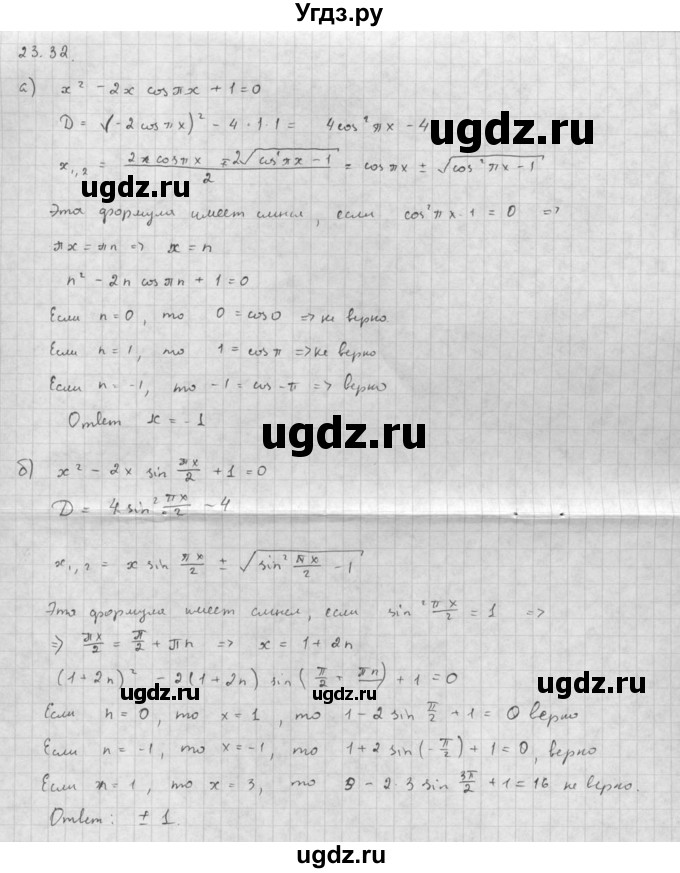 Угдз.ру
23.32.
а) x² - 2x cos πx + 1 = 0
D = (-2 cos πx)² - 4·1·1 = 4cos²πx - 4
ugdz.ru
x₁,₂ = (2x cos πx ± 2√(cos²πx - 1))/2 = cos πx ± √(cos²πx - 1)
ugdz.ru
Эта формула имеет смысл, если cos²πx - 1 = 0 =>
πx = πn => x = n
n² - 2n cos πn + 1 = 0
Если n = 0, то 0 = cos 0 => не верно.
Если n = 1, то 1 = cos π => не верно
Если n = -1, то -1 = cos -π => верно
Ответ x = -1
ugdz.ru
б) x² - 2x sin πx/2 + 1 = 0
D = 4 sin² πx/2 - 4
ugdz.ru
x₁,₂ = x sin πx/2 ± √(sin² πx/2 - 1)
Эта формула имеет смысл, если sin² πx/2 = 1 =>
=> πx/2 = π/2 + πn => x = 1 + 2n
(1+2n)² - 2(1+2n) sin(π/2 + πn) + 1 = 0
ugdz.ru
ugdz.ru
Если n = 0, то x = 1, то 1 - 2 sin π/2 + 1 = 0 верно
Если n = -1, то x = -1, то 1 + 2 sin(-π/2) + 1 = 0, верно
Если n = 1, то x = 3, то 9 - 2·3 sin 3π/2 + 1 = 16 не верно.
Ответ: ± 1.
ugdz.ru
ugdz.ru